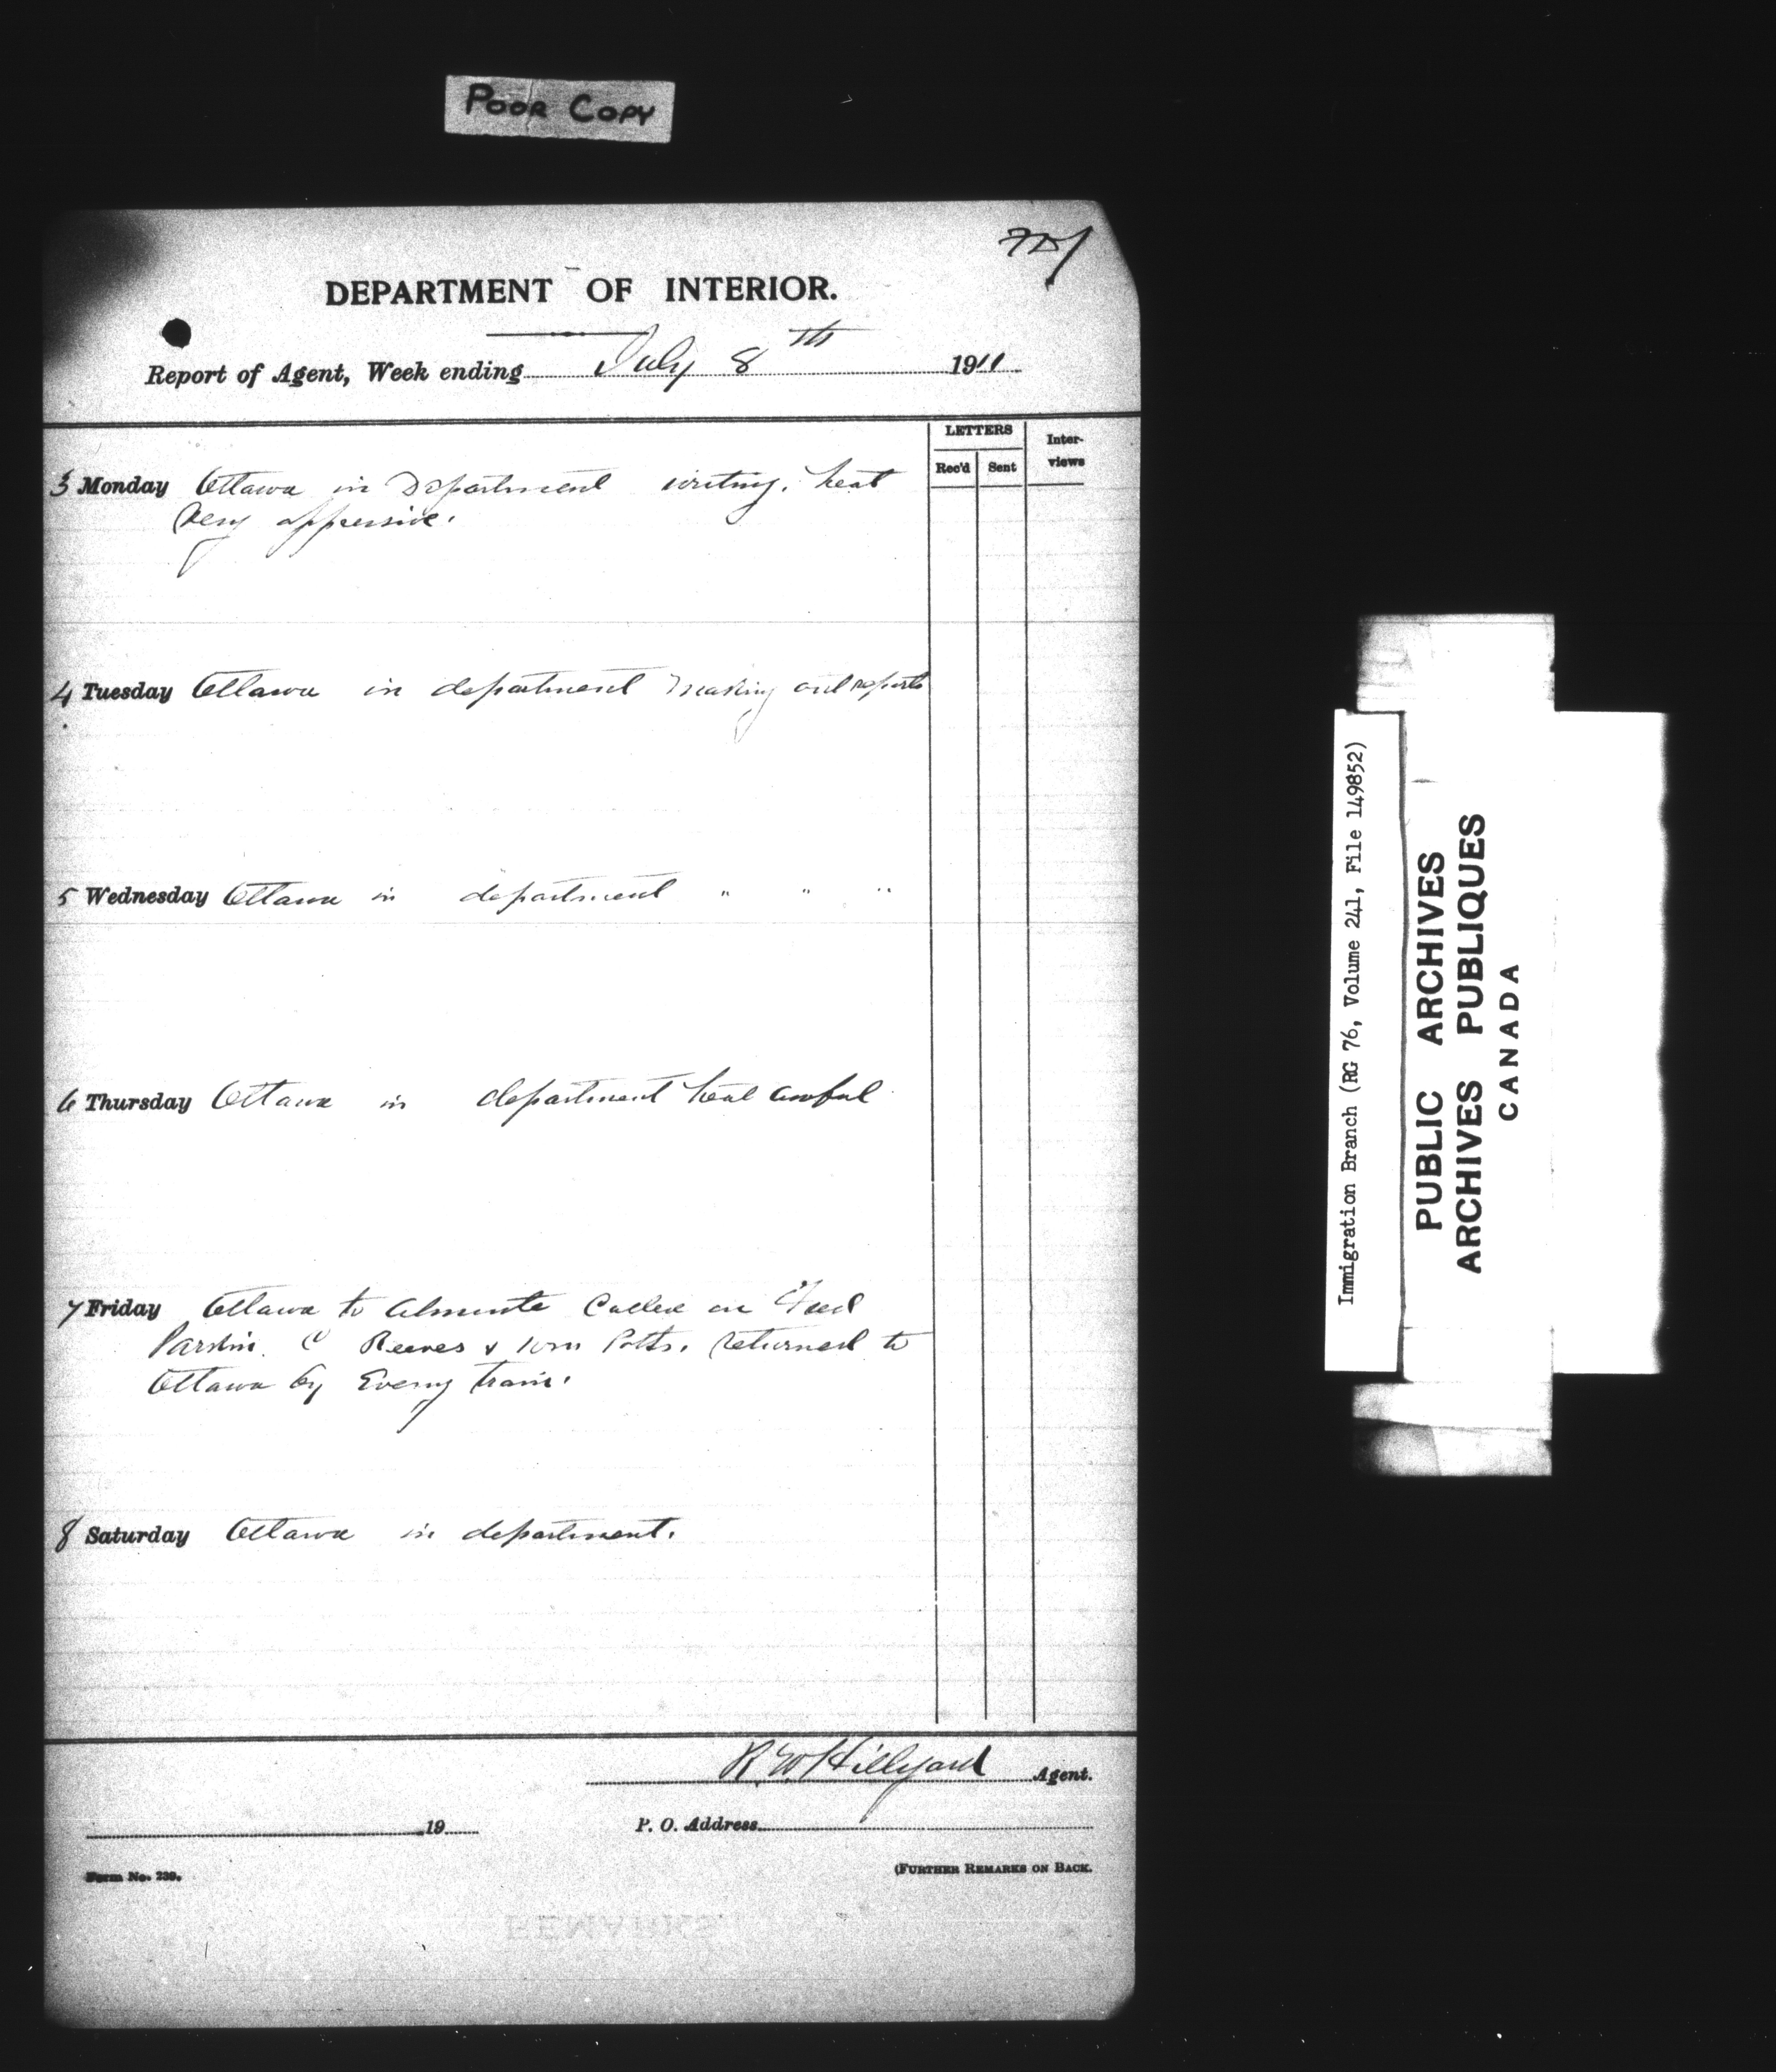 POOR COPY
DEPARTMENT OF INTERIOR.
Report of Agent, Week ending July 8th 1911
LETTERS
Rec'd Sent
Inter-
views
3 Monday Ottawa in Department writing. heat
Very oppressive.
4 Tuesday Ottawa in department making out reports
5 Wednesday Ottawa in department " " "
6 Thursday Ottawa in department heat awful
7 Friday Ottawa to Almonte Called on Fred
C Reeves & Wm Potts. returned to
Ottawa by Evening train.
8 Saturday Ottawa in department.
R. W. Hillyard Agent.
19
P. O. Address
Form No. 239.
(FURTHER REMARKS ON BACK.
REMARKS.
Immigration Branch (RG 76, Volume 241, File 149852)
PUBLIC ARCHIVES
ARCHIVES PUBLIQUES
CANADA